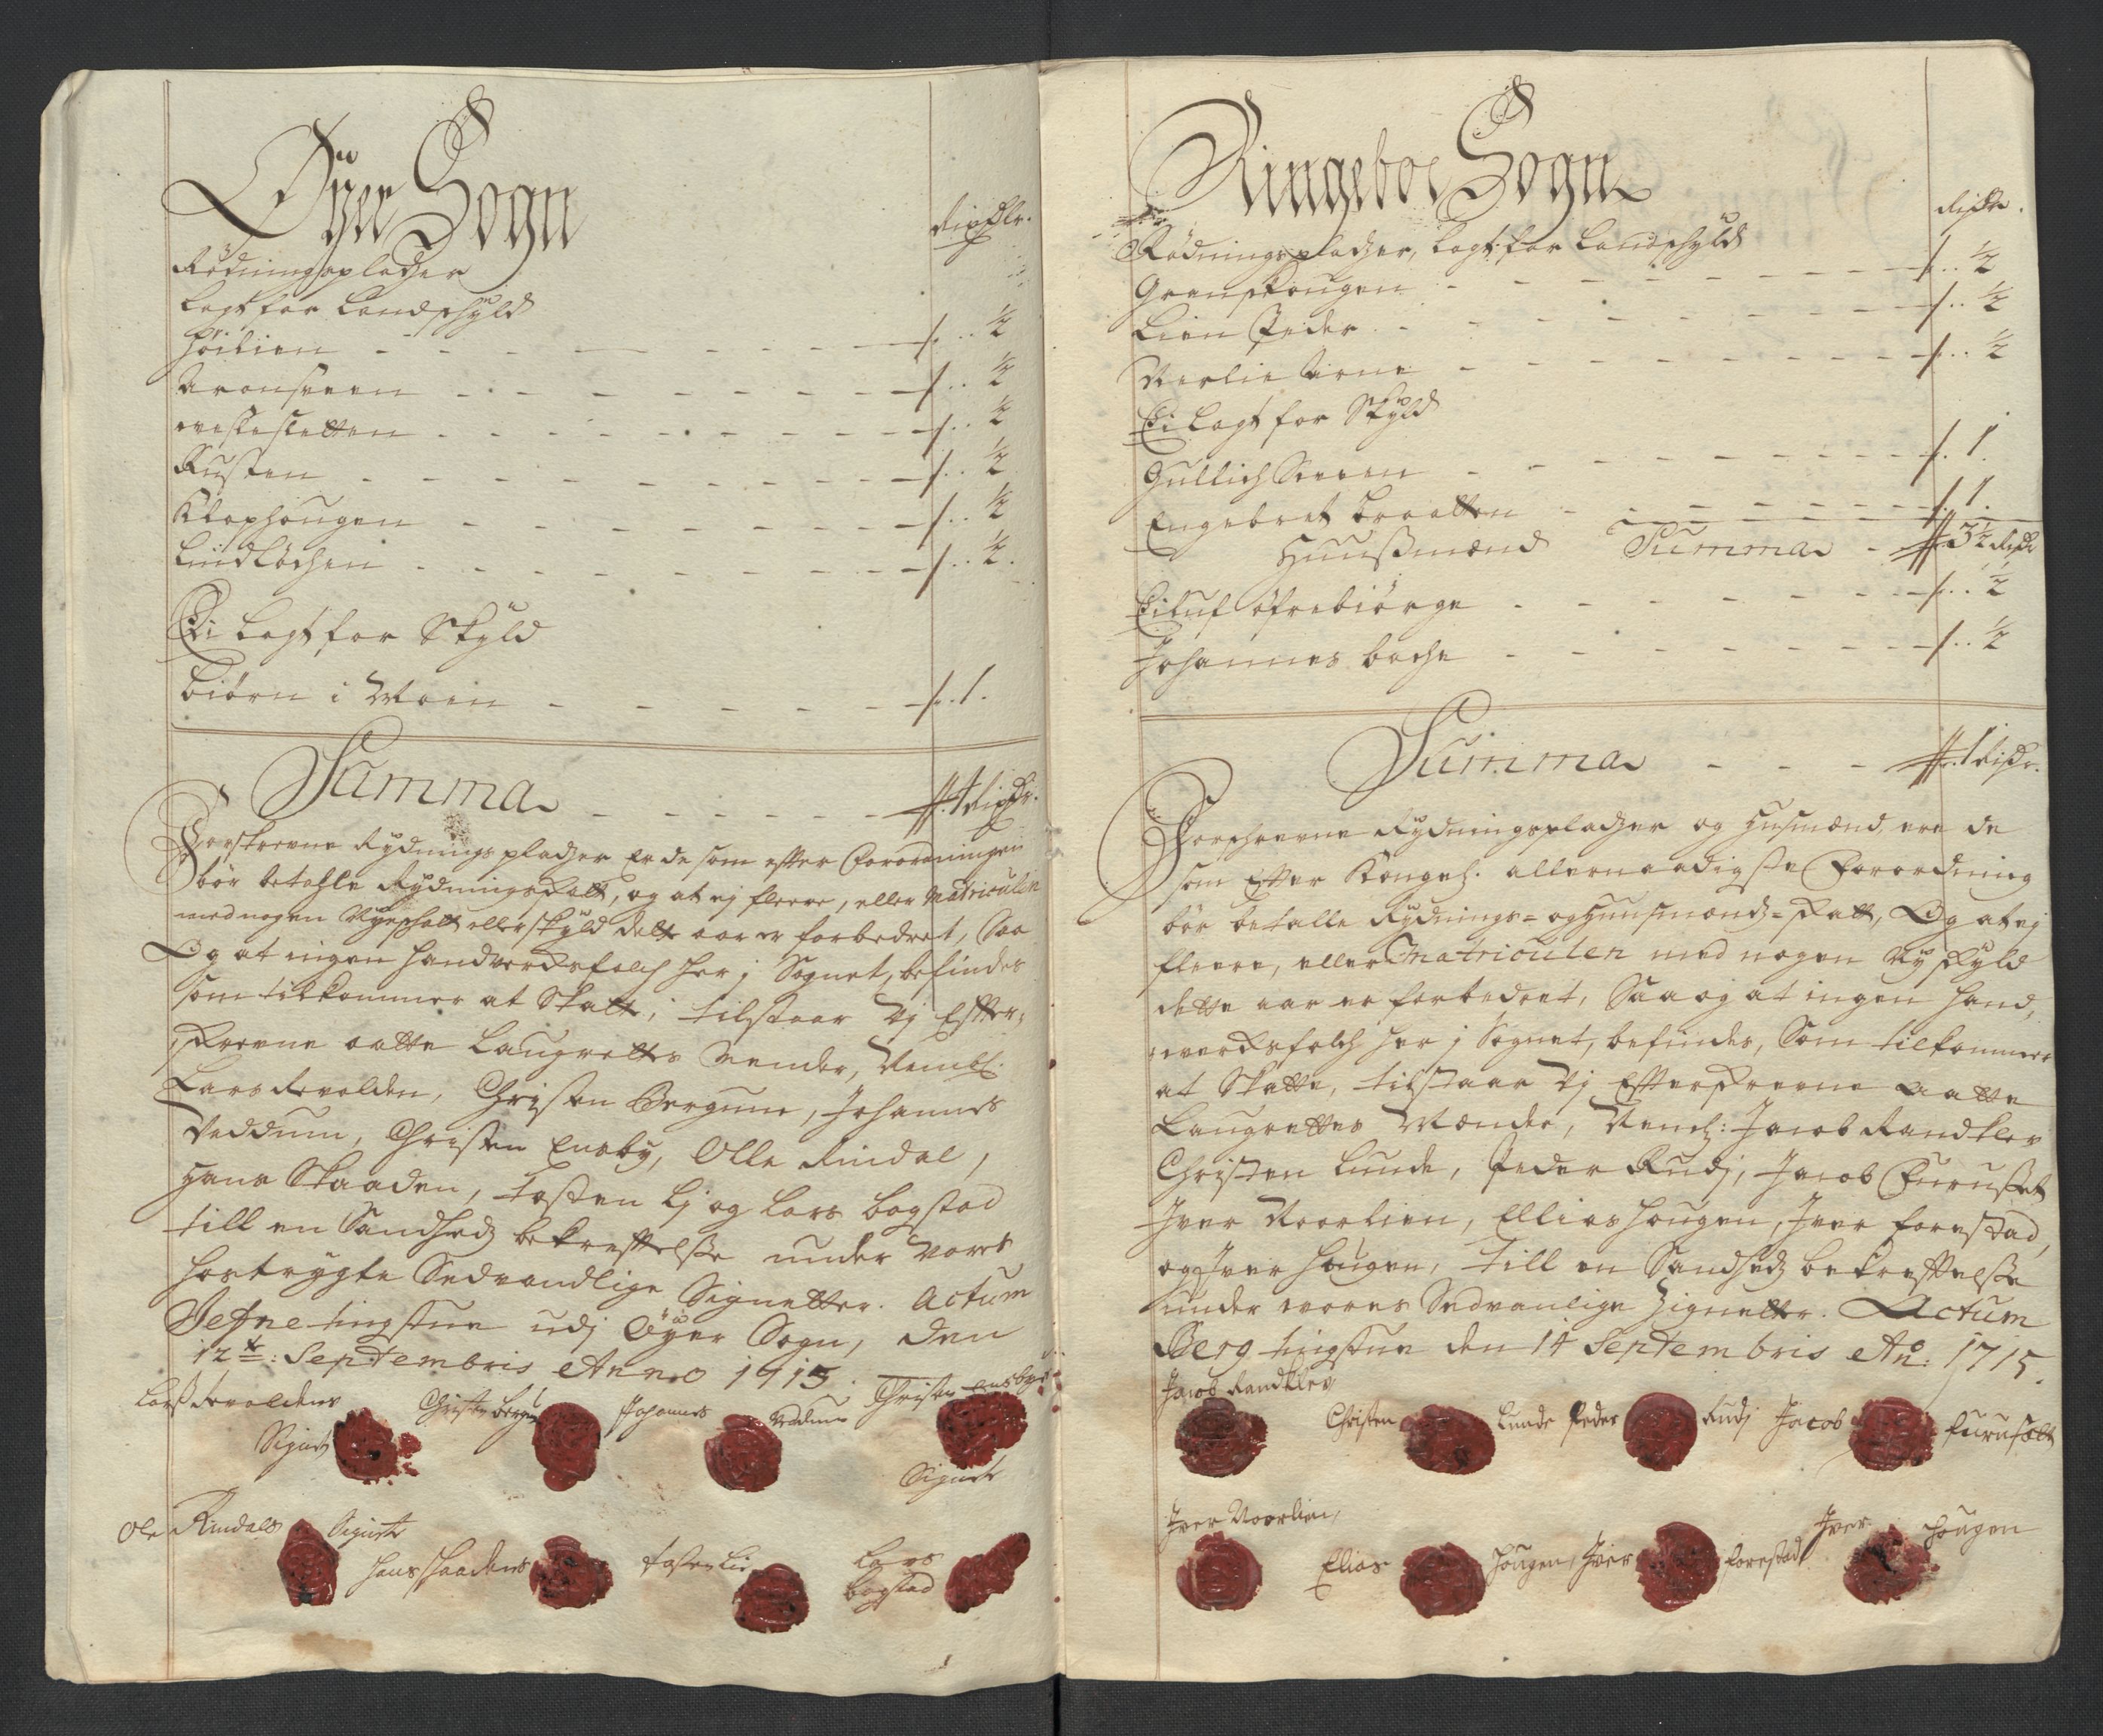 Øÿer Sogn
Rixdlr.
Rødningspladzer
lagt for Landschÿld
Høilien - - - - - - - - 1/2
Aronsveen - - - - - - - - 1/2
- - - - - - - - 1/2
Rusten - - - - - - - - 1/2
Klaphougen - - - - - - - - 1/2
Lindløchen - - - - - - - - 1/2.
Ei lagt for Skÿld
Biørn i Moen - - - - - - 1.
Summa - - - - - - 4 Rixdr.
Forskrevne Rÿdnings pladzer er de som efter Forordningen
bør betahle Rÿdningsskatt, og at ej fleere, eller Matriculen
med nogen Nÿeschatt eller skÿld dette aar er forbedret, Saa
Og at ingen handverksfolch her j Sognet, befindes
som tilkommer at Skatte, tilstaar vj Effter-
skrevne aatte Laugrettes Mender, Neml.
Lars Revolden, Christen Bergum, Johannes
Veddum, Christen Ensby, Olle Rindal,
Hans Skaaden, Tosten Lj og Lars bogstad
till en Sandheds bekreftelsse under vores
hostrygte Sedvandlige Signetter. Actum
tingstue udj Øÿer Sogn, den
12te: Septembris Anno 1715.
Lars Revoldens
Signet
Christen Bergum
Johannes
Veddum
Christen Ensbyes
Signete
Ole Rindals Signete
Hans Skaadens
Tosten Lie
Lars
bogstad
Ringeboe Sogn
Rixdr.
Rødningspladzer, lagt for Landschÿld
Grønskougen - - - - - - - - 1/2
Lien Peder - - - - - - - - 1/2
- - - - - - - - 1/2
Ei lagt for Skÿld
Gullich Sveen - - - - - - - - 1.
Engebret braatten - - - - - - 1.
Huussmænd Summa - 3 1/2 Rixdr
Eiluf øfrebiørge - - - - - - 1/2
Johannes bache - - - - - - - 1/2
Summa - - - 1 Rixdr.
Forschrevne Rÿdningspladzer og Husmænd ere de
som Efter Kongel. allernaadigste Forordning
bør betalle Rÿdnings- og Huusmands-skatt, Og at ej
fleere, eller Matriculen med nogen Nÿ skÿld
dette aar er forbedret, Saa og at ingen hand,
verksfolch her j Sognet, befindes, Som tilkommer
at Skatte, tilstaar vj Effterskrevne aatte
Laugrettes Mænder, Neml: Jacob Randklev
Christen Lunde, Peder Rudj, Jacob Furusset
Iver Noorlien, Ellias hougen, Iver forestad,
og Iver hougen, till en Sandheds bekreftelsse
under vores Sedvanlige Zignetter. Actum
Berg tingstue den 14 Septembris Ano: 1715.
Jacob Randklev
Christen Lunde Peder Rudj Jacob furusett
Iver Noorlien,
Elias hougen, Iver forestad Iver hougen